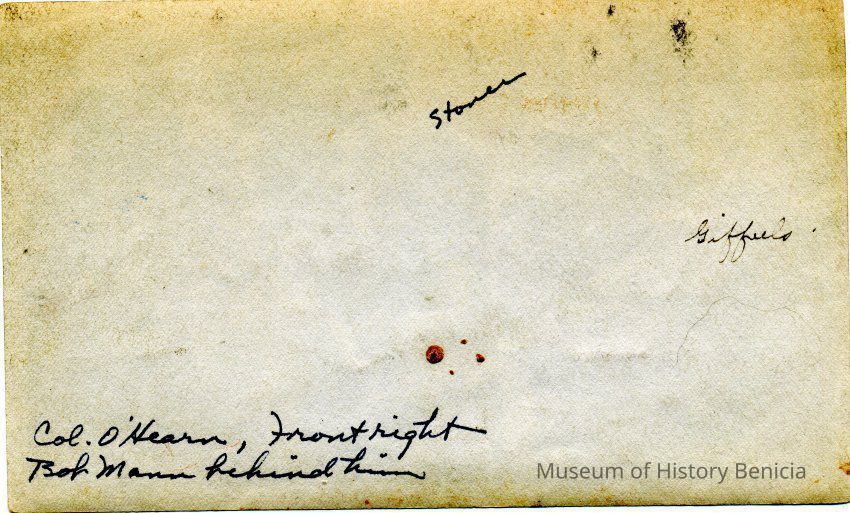 Stoner
Giffuls
Col. O'Hearn, Front right
Bob Mann behind him
Museum of History Benicia